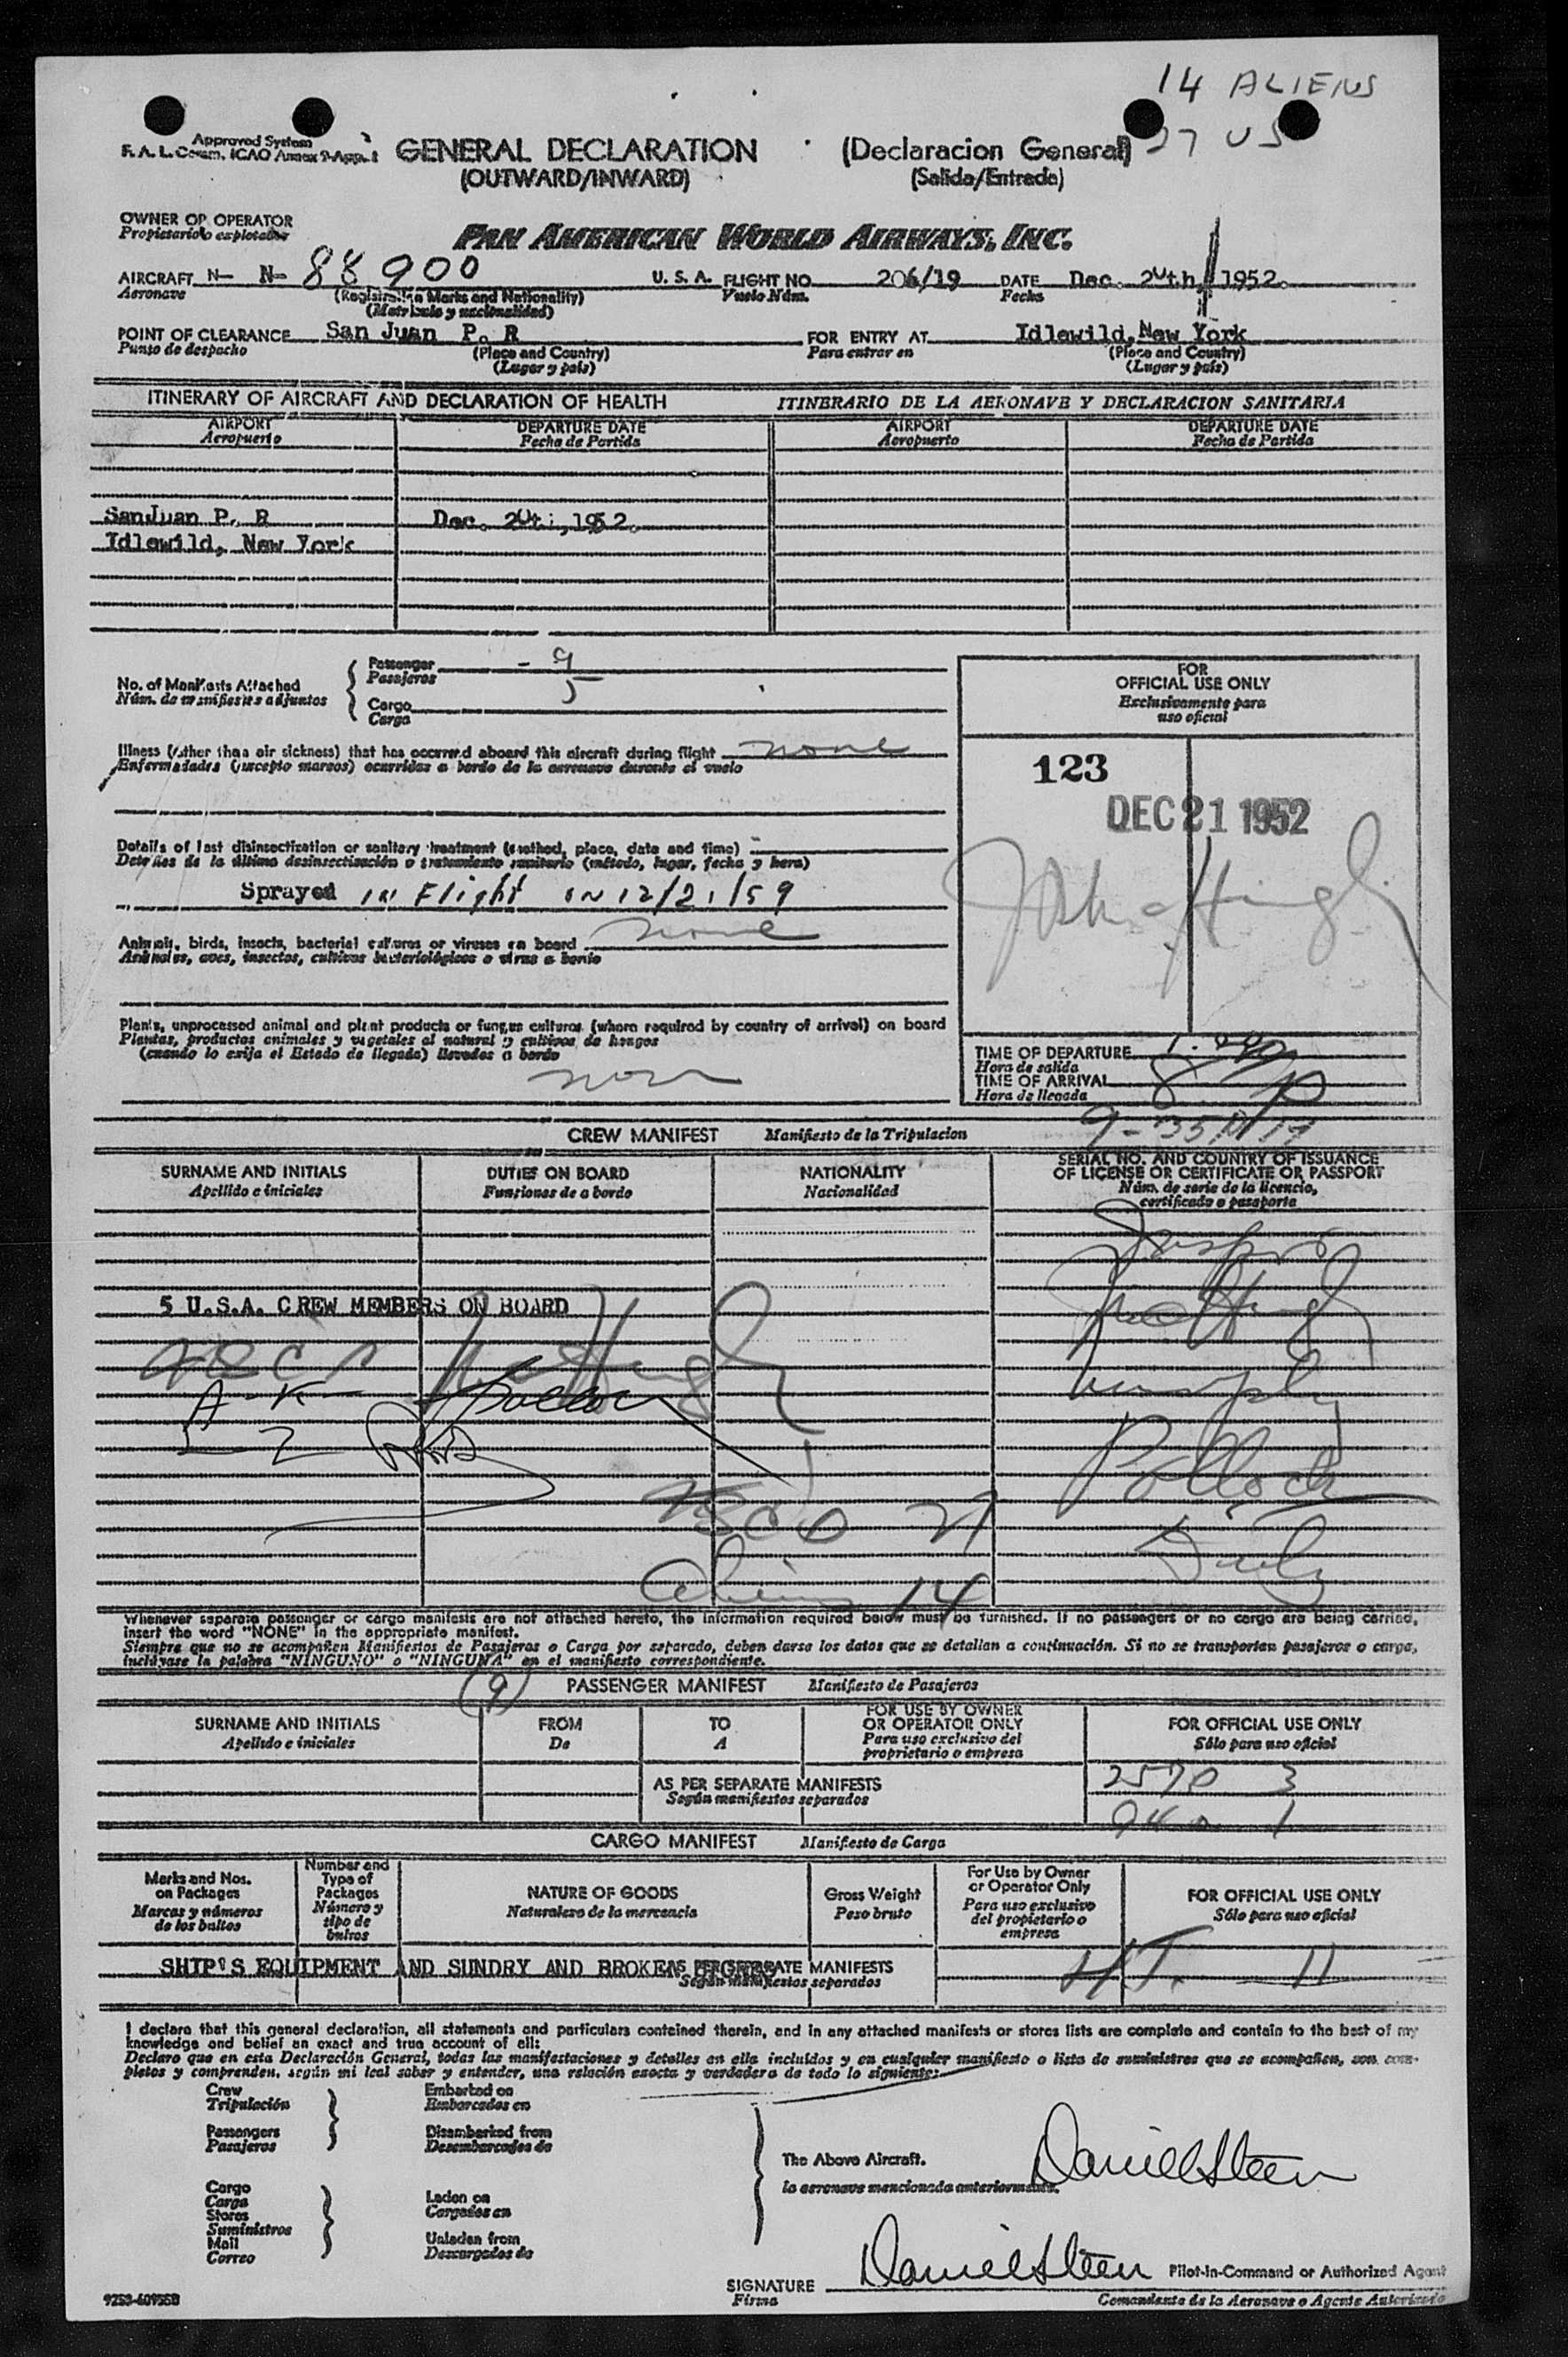 14 ALIENS
27 US
Approved System
F. A. L. Comm. ICAO Annex 9-App. 1
GENERAL DECLARATION (Declaracion General)
(OUTWARD/INWARD) (Salida/Entrada)
OWNER OR OPERATOR
Propietario o explotador
PAN AMERICAN WORLD AIRWAYS, INC.
AIRCRAFT N- N- 88900 U. S. A. FLIGHT NO 206/19 DATE Dec. 24th, 1952.
Aeronave (Registration Marks and Nationality) Vuelo Núm. Fecha
(Matricula y nacionalidad)
POINT OF CLEARANCE San Juan P. R FOR ENTRY AT Idlewild, New York
Punto de despacho (Place and Country) Para entrar en (Place and Country)
(Lugar y país) (Lugar y país)
ITINERARY OF AIRCRAFT AND DECLARATION OF HEALTH ITINERARIO DE LA AERONAVE Y DECLARACION SANITARIA
AIRPORT DEPARTURE DATE AIRPORT DEPARTURE DATE
Aeropuerto Fecha de Partida Aeropuerto Fecha de Partida
SanJuan P. R Dec. 24th, 1952.
Idlewild, New York
No. of Manifests Attached
Núm. de manifiestos adjuntos
Passenger - 9
Pasajeros 5
Cargo
Carga
Illness (other than air sickness) that has occurred aboard this aircraft during flight none
Enfermedades (excepto mareos) ocurridas a bordo de la aeronave durante el vuelo
Details of last disinsectization or sanitary treatment (method, place, date and time)
Detalles de la última desinsectización o tratamiento sanitario (método, lugar, fecha y hora)
Sprayed in Flight on 12/21/59
Animals, birds, insects, bacterial cultures or viruses on board none
Animales, aves, insectos, cultivos bacteriológicos o virus a bordo
Plants, unprocessed animal and plant products or fungus cultures (where required by country of arrival) on board
Plantas, productos animales y vegetales al natural y cultivos de hongos
(cuando lo exija el Estado de llegada) llevados a bordo
FOR
OFFICIAL USE ONLY
Exclusivamente para
uso oficial
123
DEC 21 1952
TIME OF DEPARTURE
Hora de salida
TIME OF ARRIVAL
Hora de llegada
CREW MANIFEST Manifiesto de la Tripulacion
SURNAME AND INITIALS DUTIES ON BOARD NATIONALITY SERIAL NO. AND COUNTRY OF ISSUANCE
OF LICENSE OR CERTIFICATE OR PASSPORT
Apellido e iniciales Funciones de a bordo Nacionalidad Núm. de serie de la licencia,
certificado o pasaporte
5 U.S.A. CREW MEMBERS ON BOARD
A-K Pollock
L-Z
Murphy
Pollock
27
Aliens 14
Whenever separate passenger or cargo manifests are not attached hereto, the information required below must be furnished. If no passengers or no cargo are being carried,
insert the word "NONE" in the appropriate manifest.
Siempre que no se acompañen Manifiestos de Pasajeros o Carga por separado, deben darse los datos que se detallan a continuación. Si no se transportan pasajeros o carga,
inclúyase la palabra "NINGUNO" o "NINGUNA" en el manifiesto correspondiente.
(9) PASSENGER MANIFEST Manifiesto de Pasajeros
SURNAME AND INITIALS FROM TO FOR USE BY OWNER
OR OPERATOR ONLY FOR OFFICIAL USE ONLY
Apellido e iniciales De A Para uso exclusivo del
propietario o empresa Sólo para uso oficial
AS PER SEPARATE MANIFESTS
Según manifiestos separados
CARGO MANIFEST Manifiesto de Carga
Marks and Nos.
on Packages
Marcas y números
de los bultos
Number and
Type of
Packages
Número y
tipo de
bultos
NATURE OF GOODS
Naturaleza de la mercancía
Gross Weight
Peso bruto
For Use by Owner
or Operator Only
Para uso exclusivo
del propietario o
empresa
FOR OFFICIAL USE ONLY
Sólo para uso oficial
SHIP'S EQUIPMENT AND SUNDRY AND BROKEN AS PER SEPARATE MANIFESTS
Según manifiestos separados
H.T. 11
I declare that this general declaration, all statements and particulars contained therein, and in any attached manifests or stores lists are complete and contain to the best of my
knowledge and belief an exact and true account of all:
Declaro que en esta Declaración General, todas las manifestaciones y detalles en ella incluídos y en cualquier manifiesto o lista de suministros que se acompañen, son com-
pletos y comprenden, según mi leal saber y entender, una relación exacta y verdadera de todo lo siguiente:
Crew Embarked on
Tripulación Embarcados en
Passengers Disembarked from
Pasajeros Desembarcados de
The Above Aircraft. Daniel Steen
la aeronave mencionada anteriormente.
Cargo Laden on
Carga Cargados en
Stores
Suministros
Mail Unladen from
Correo Descargados de
SIGNATURE Daniel Steen Pilot-in-Command or Authorized Agent
Firma Comandante de la Aeronave o Agente Autorizado
9253-60955B